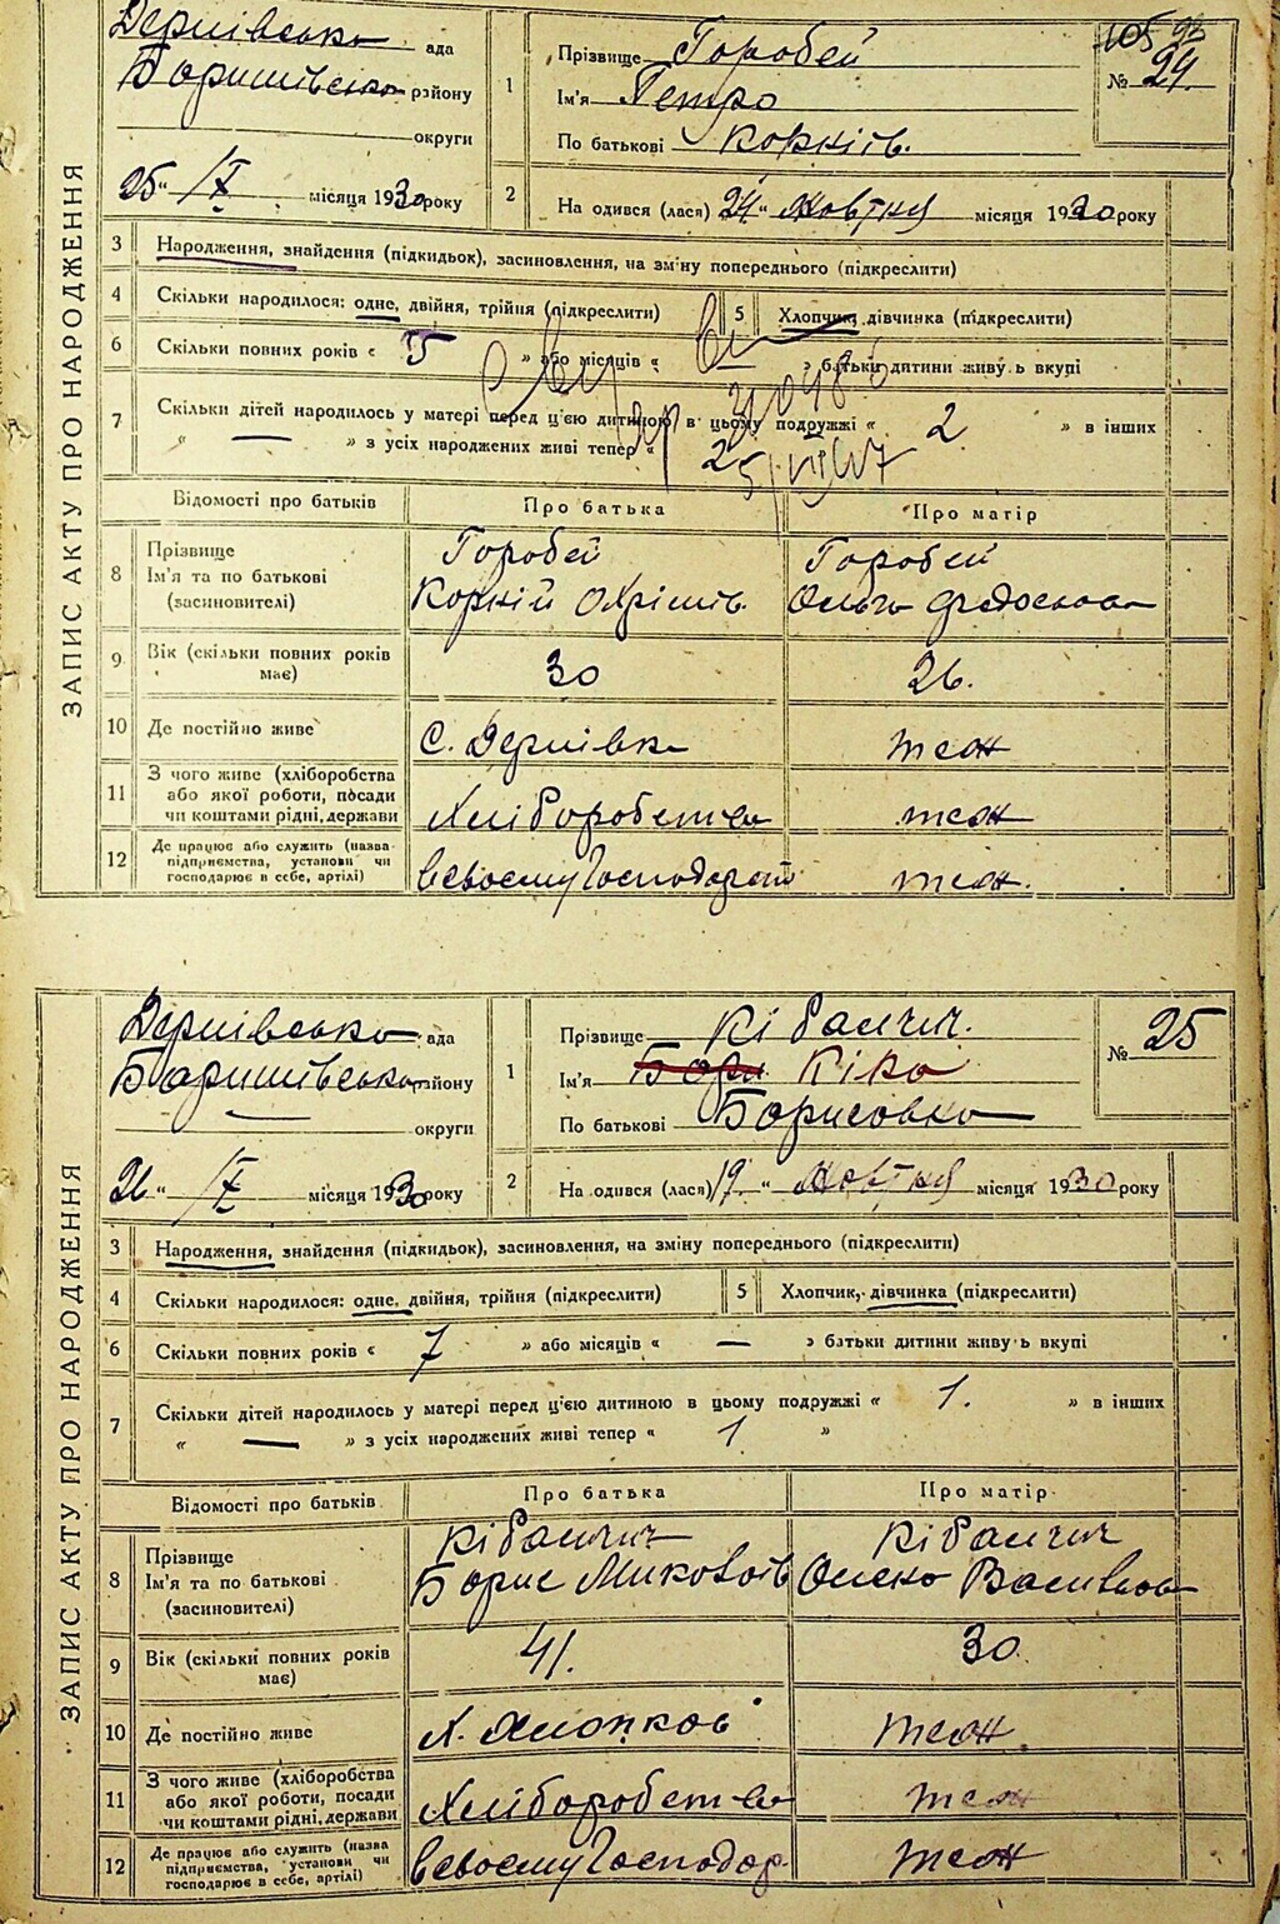 ЗАПИС АКТУ ПРО НАРОДЖЕННЯ
Дернівська ада
Баришівська району
округи
25 " /X місяця 1930 року
1 Прізвище Горобей
Ім'я Петро
По батькові Корніїв.
105 93
№ 24.
2 На одився (лася) 24 " Жовтня місяця 1930 року
3 Народження, знайдення (підкидьок), засиновлення, на зміну попереднього (підкреслити)
4 Скільки народилося: одне, двійня, трійня (підкреслити) 5 Хлопчик, дівчинка (підкреслити)
6 Скільки повних років « 5 » або місяців « » батьки дитини живу ь вкупі
7 Скільки дітей народилось у матері перед ц'єю дитиною в цьому подружжі « 2 » в інших
« — » з усіх народжених живі тепер « 2
25/VII 47
Відомості про батьків Про батька Про матір
8 Прізвище Горобей Горобей
Ім'я та по батькові Корній Охрімів. Ольга Федоськова
(засиновителі)
9 Вік (скільки повних років має) 30 26.
10 Де постійно живе С. Дернівка теж
11 З чого живе (хліборобства
або якої роботи, посади
чи коштами рідні, держави Хліборобства теж
12 Де працює або служить (назва
підприємства, установи чи
господарює в себе, артілі) В своєму Господарст теж.
ЗАПИС АКТУ ПРО НАРОДЖЕННЯ
Дернівська ада
Баришівська району
— округи
26 " /X місяця 1930 року
1 Прізвище Кібалчич.
Ім'я Бори. Кіка
По батькові Борисовка
№ 25
2 На одився (лася) 19. " Жовтня місяця 1930 року
3 Народження, знайдення (підкидьок), засиновлення, на зміну попереднього (підкреслити)
4 Скільки народилося: одне, двійня, трійня (підкреслити) 5 Хлопчик, дівчинка (підкреслити)
6 Скільки повних років « 7 » або місяців « — » батьки дитини живу ь вкупі
7 Скільки дітей народилось у матері перед ц'єю дитиною в цьому подружжі « 1. » в інших
« — » з усіх народжених живі тепер « 1 »
Відомості про батьків Про батька Про матір
8 Прізвище Кібалчич Кібалчич
Ім'я та по батькові Борис Миколаїв Олека Василівна
(засиновителі)
9 Вік (скільки повних років має) 41. 30.
10 Де постійно живе Х. Хлопков теж
11 З чого живе (хліборобства
або якої роботи, посади
чи коштами рідні, держави Хліборобства теж
12 Де працює або служить (назва
підприємства, установи чи
господарює в себе, артілі) В своєму Господар. теж